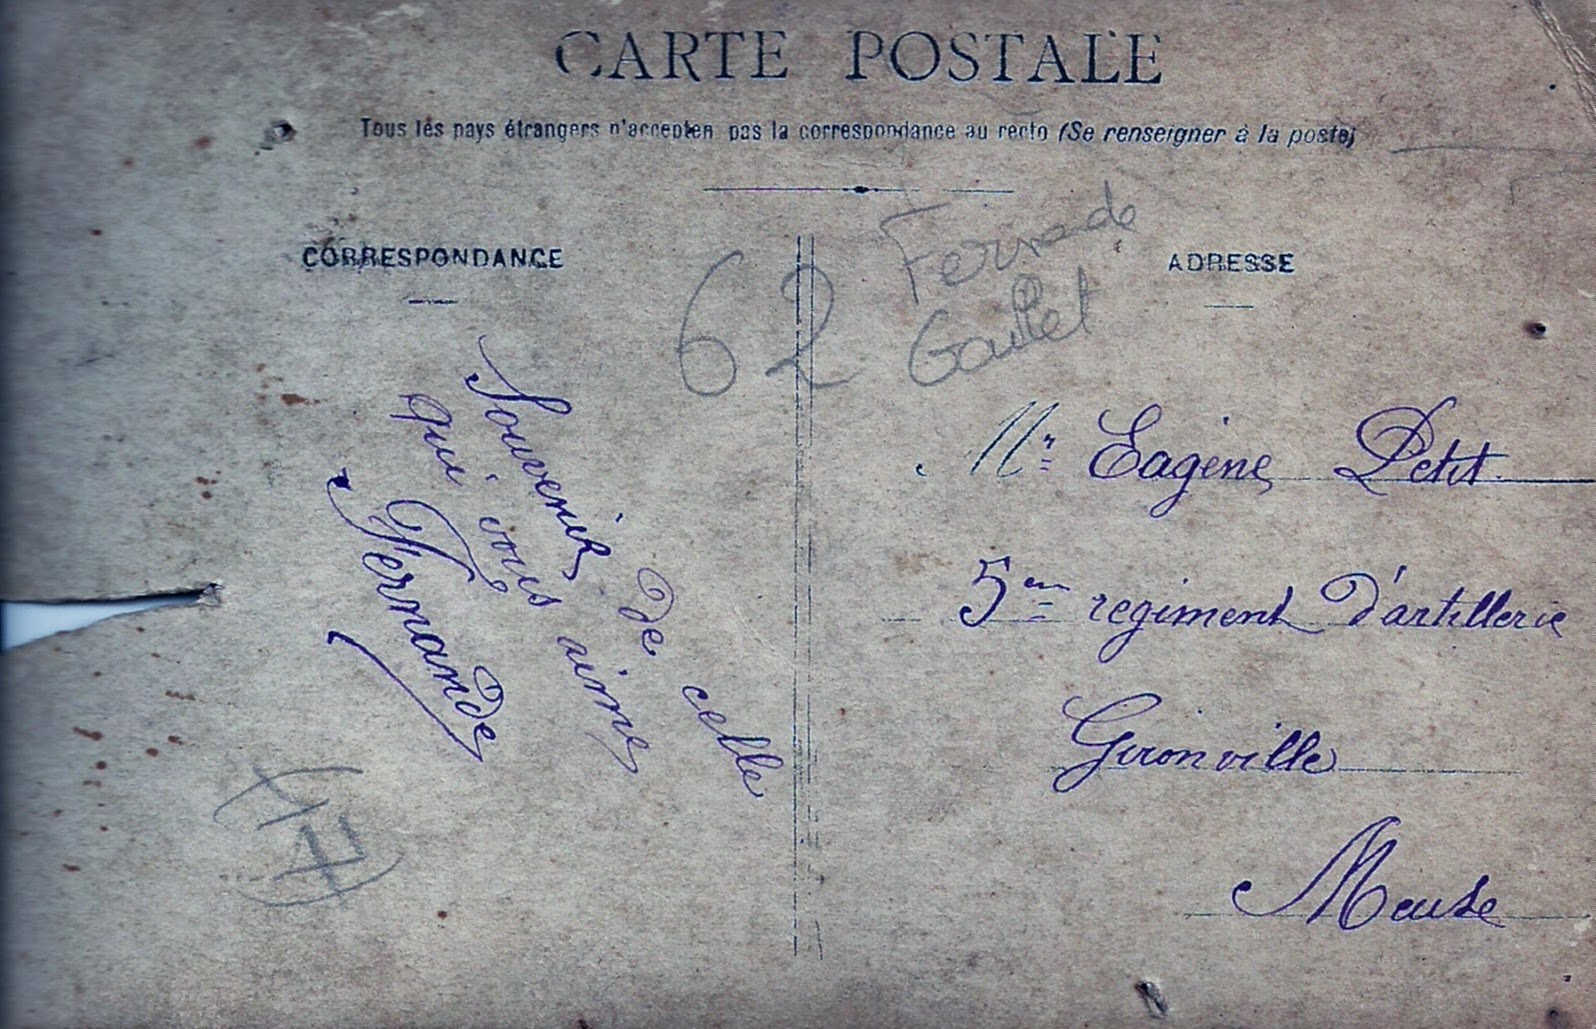 CARTE POSTALE
Tous les pays étrangers n'accepten pas la correspondance au recto (Se renseigner à la poste)
CORRESPONDANCE
Souvenir de celle
qui vous aime
Fernande
62
Fernade
ADRESSE
Mr Eugène Petit
5em regiment d'artillerie
Gironville
Meuse